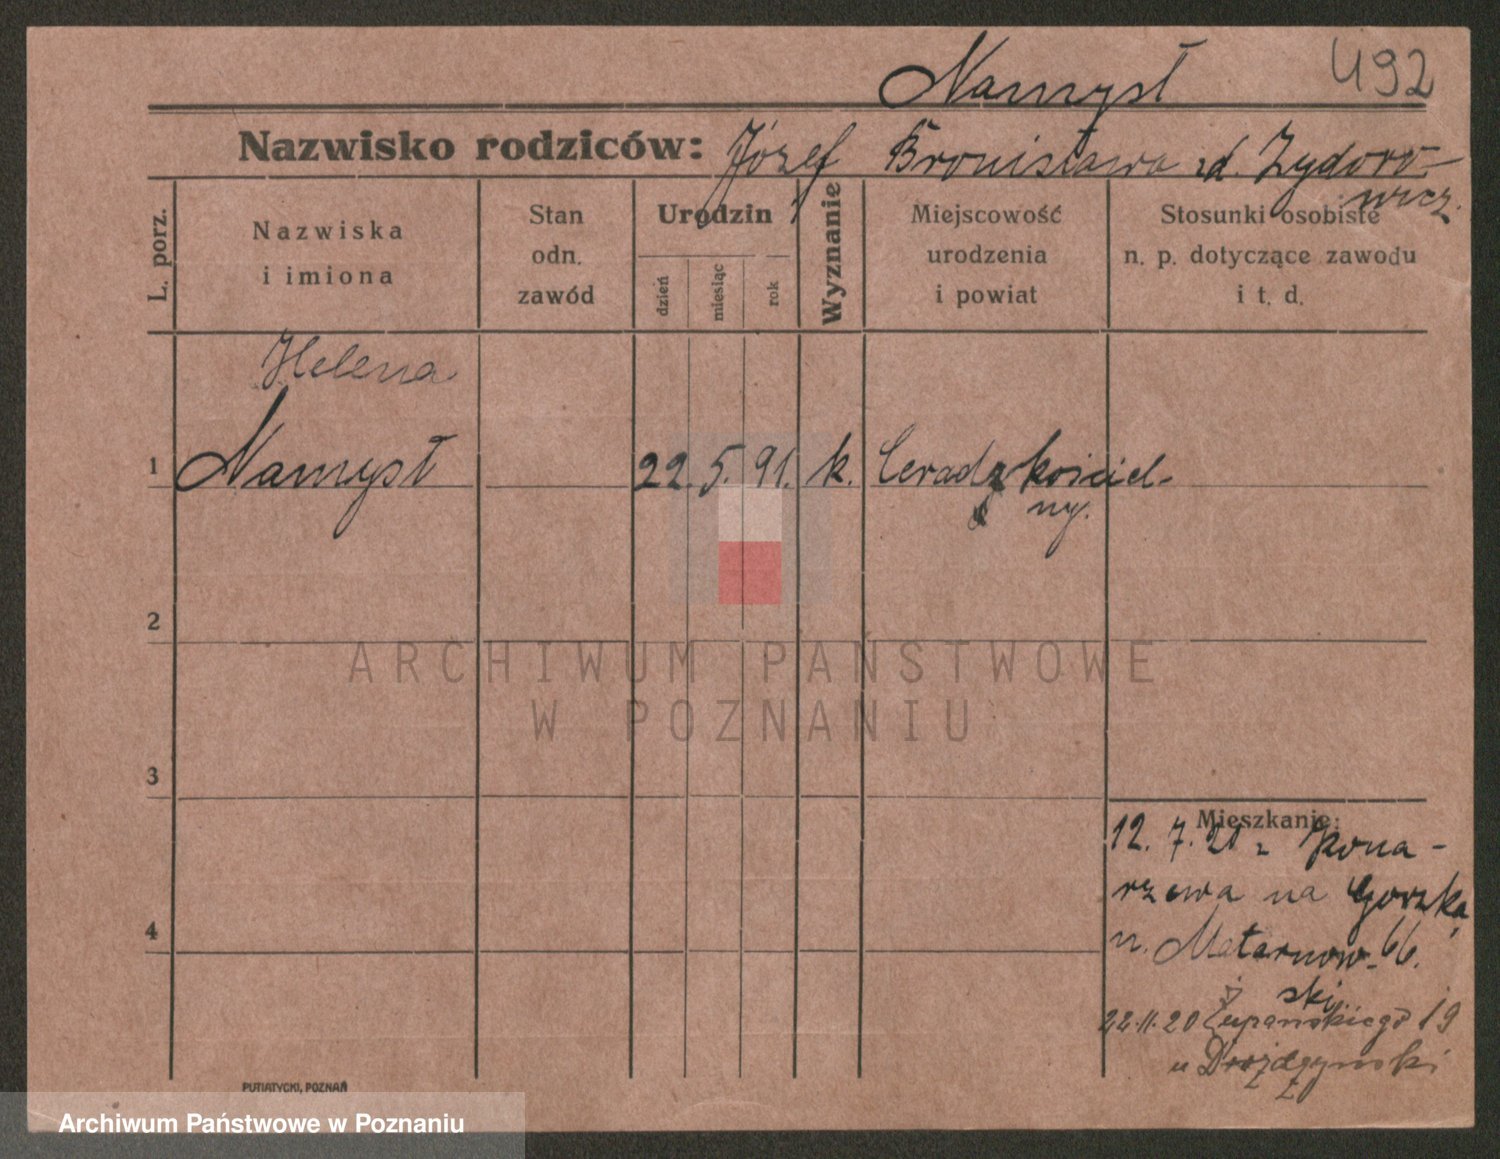 Namysł 492
Nazwisko rodziców: Józef Bronisława zd. Zydoro-
wicz.
L. porz.
Nazwiska
i imiona
Stan
odn.
zawód
Urodzin
dzień
miesiąc
rok
Wyznanie
Miejscowość
urodzenia
i powiat
Stosunki osobiste
n. p. dotyczące zawodu
i t. d.
Helena
1 Namysł 22. 5. 91. k. Ceradz kościel-
ny.
2
3
4
Mieszkanie:
12. 7. 20 z Kona-
rzewa na Gorzka
n. Matarnow- 66.
ski
22.11.20 Żupańskiego 19
u Drożdżyński
PUTIATYCKI, POZNAŃ
ARCHIWUM PAŃSTWOWE
W POZNANIU
Archiwum Państwowe w Poznaniu